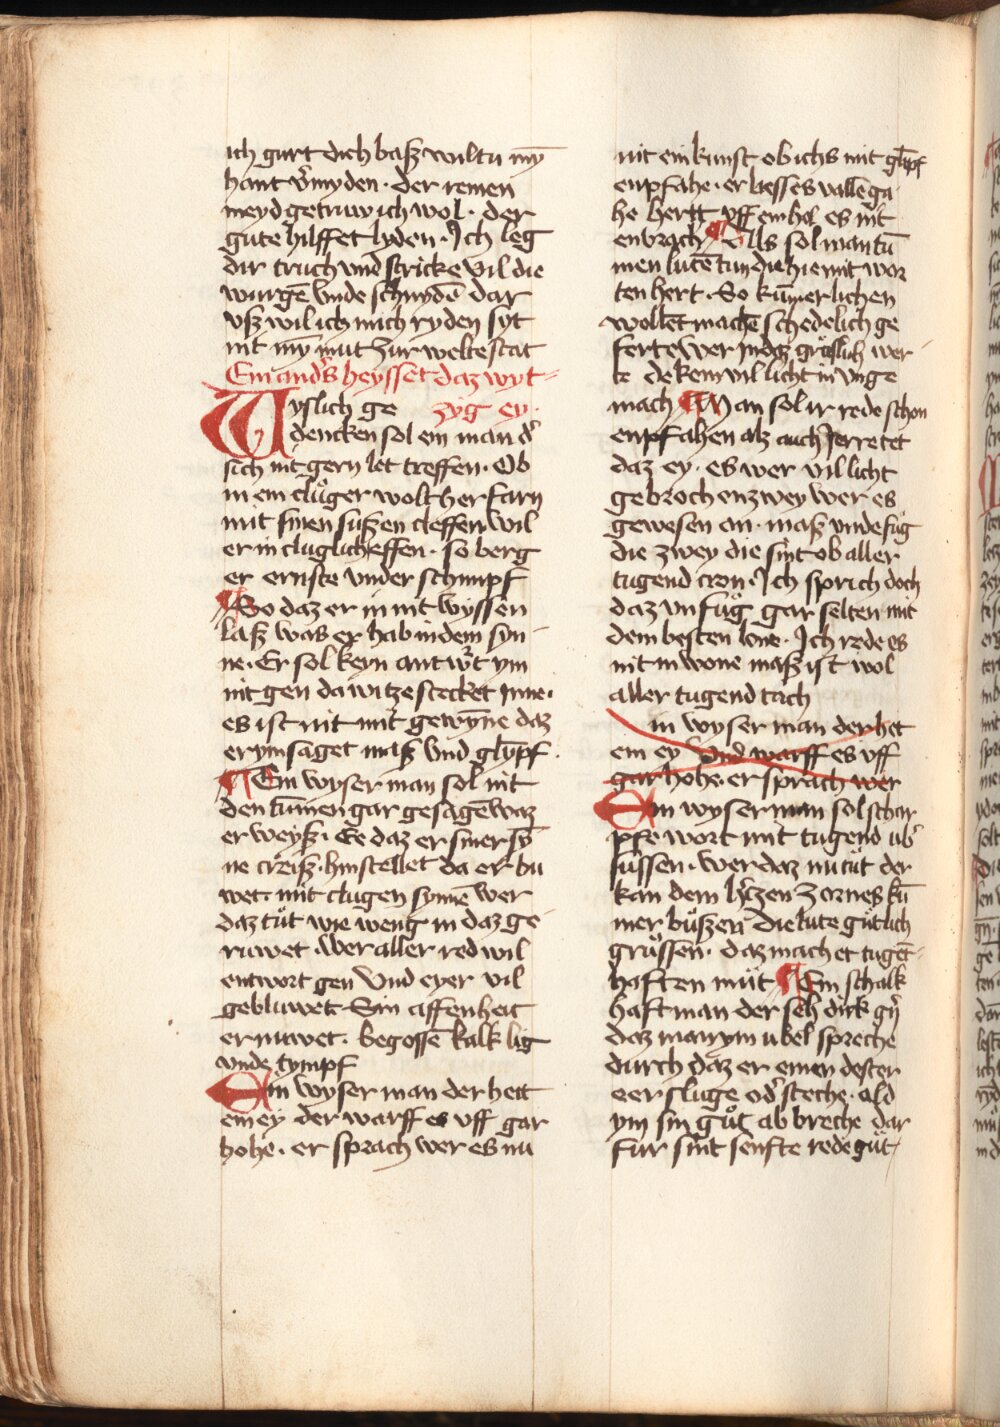 ich gurt dich basz wiltu my̅
hant v̓myden · der reinen
meyd getruw ich wol · der
gute hilffet lyden · Ich leg
dir truch vnd stricke vil die
wurge̅ vnde schnyde̅ dar
vsz wil ich mich ryden syt
nit my̅ mut zur welte stat
Ein and̓s heysset daz wyt-
Wyslich ge zyg ey·
dencken sol ein man d̓
sich nit gern let treffen · Ob
in ein cluͦger wolt her farn
mit sinen suszen cleffen wil
er in cluglich effen · so berg
er ernste vnder schimpf
¶ So daz er in nit wyssen
lasz was er hab in dem syn-
ne · Er sol keyn antw̓t ym
nit gen da witze stecket inne·
es ist nit mit gewy̅ne daz
er ym saget masz vnd gly̅pf·
¶ Ein wyser man sol nit
den tu̅men gar gesage̅ waz
er weysz · Ee daz er siner sy̅
ne creisz · hinstellet da er bu
wet mit clugen synne̅ wer
daz tuͤt wie weng in daz ge-
ruwet · Wer aller red wil
entwort gen vnd eyer vil
gebluwet Sin affenheit
ernuwet · begosse̅ kalk lig
vnde tympf
Ein wyser man der hett
ein ey der warff es vff gar
hohe · er sprach wer es nu
nit ein kunst ob ichs mit gly̅pf
enpfahe · er liesses valle̅ ga
he hertt vff ein hol es nit
enbrach ¶ Als sol man tu̅
men lute̅ tun die hie mit wor
ten hert · So ku̅merlichen
wolle̅t mache̅ schedelich ge
ferte wer moͤg gruͤslich wer-
te dekein vil licht in vnge
mach ¶ Man sol ir rede schon
enpfahen alz auch Jerretet
daz ey · es wer vil licht
gebrochen zwey wer es
gewesen an · masz vnde fug
die zwey die sint ob aller
tugend cron · Ich sprich doch
daz vnfuͤg gar selten mit
dem besten lone · Ich rede es
nit in wone masz ist wol
aller tugend tach
in wyser man der het
ein ey vnd warff es vff
gar hohe · er sprach wer
Ein wyser man sol schar
pfe wort mit tugend ub̓
suͤssen · wer daz nu tuͤt der
kan dem h̓czen zornes ku̅
mer buͤszen die lute guͤtlich
gruͤssen · daz machet tuge̅t-
haften muͤt ¶ Ein schalk
haft man der seh̓ dick gy̓
daz man ym ubel spreche
durch daz er einen dester
eer sluge od̓ steche · ald
ym sin guͦt ab breche dar
fur sint senfte rede guͦt